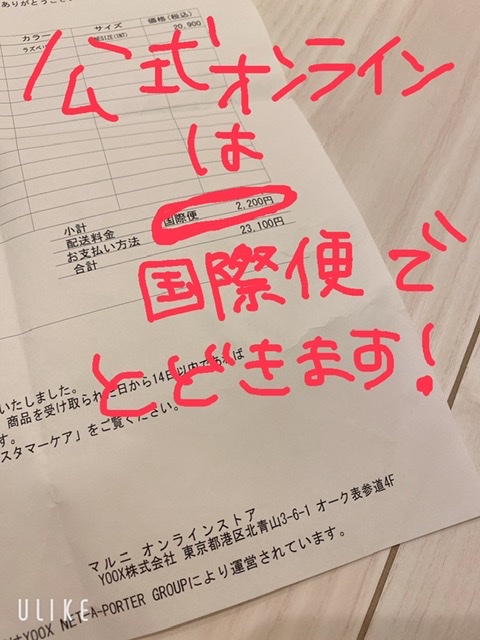 ありがとうござ
カラー サイズ 価格(税込)
ラズベリ ONESIZE(INT) 20,900
公式オンライン
は
小計
配送料金 国際便 2,200円
お支払い方法
合計 23,100円
国際便で
とどきます!
いたしました。
商品を受け取られた日から14日以内であれば
す。
スタマーケア」をご覧ください。
マルニ オンラインストア
YOOX株式会社 東京都港区北青山3-6-1 オーク表参道4F
はYOOX NET-A-PORTER GROUPにより運営されています。
ULIKE